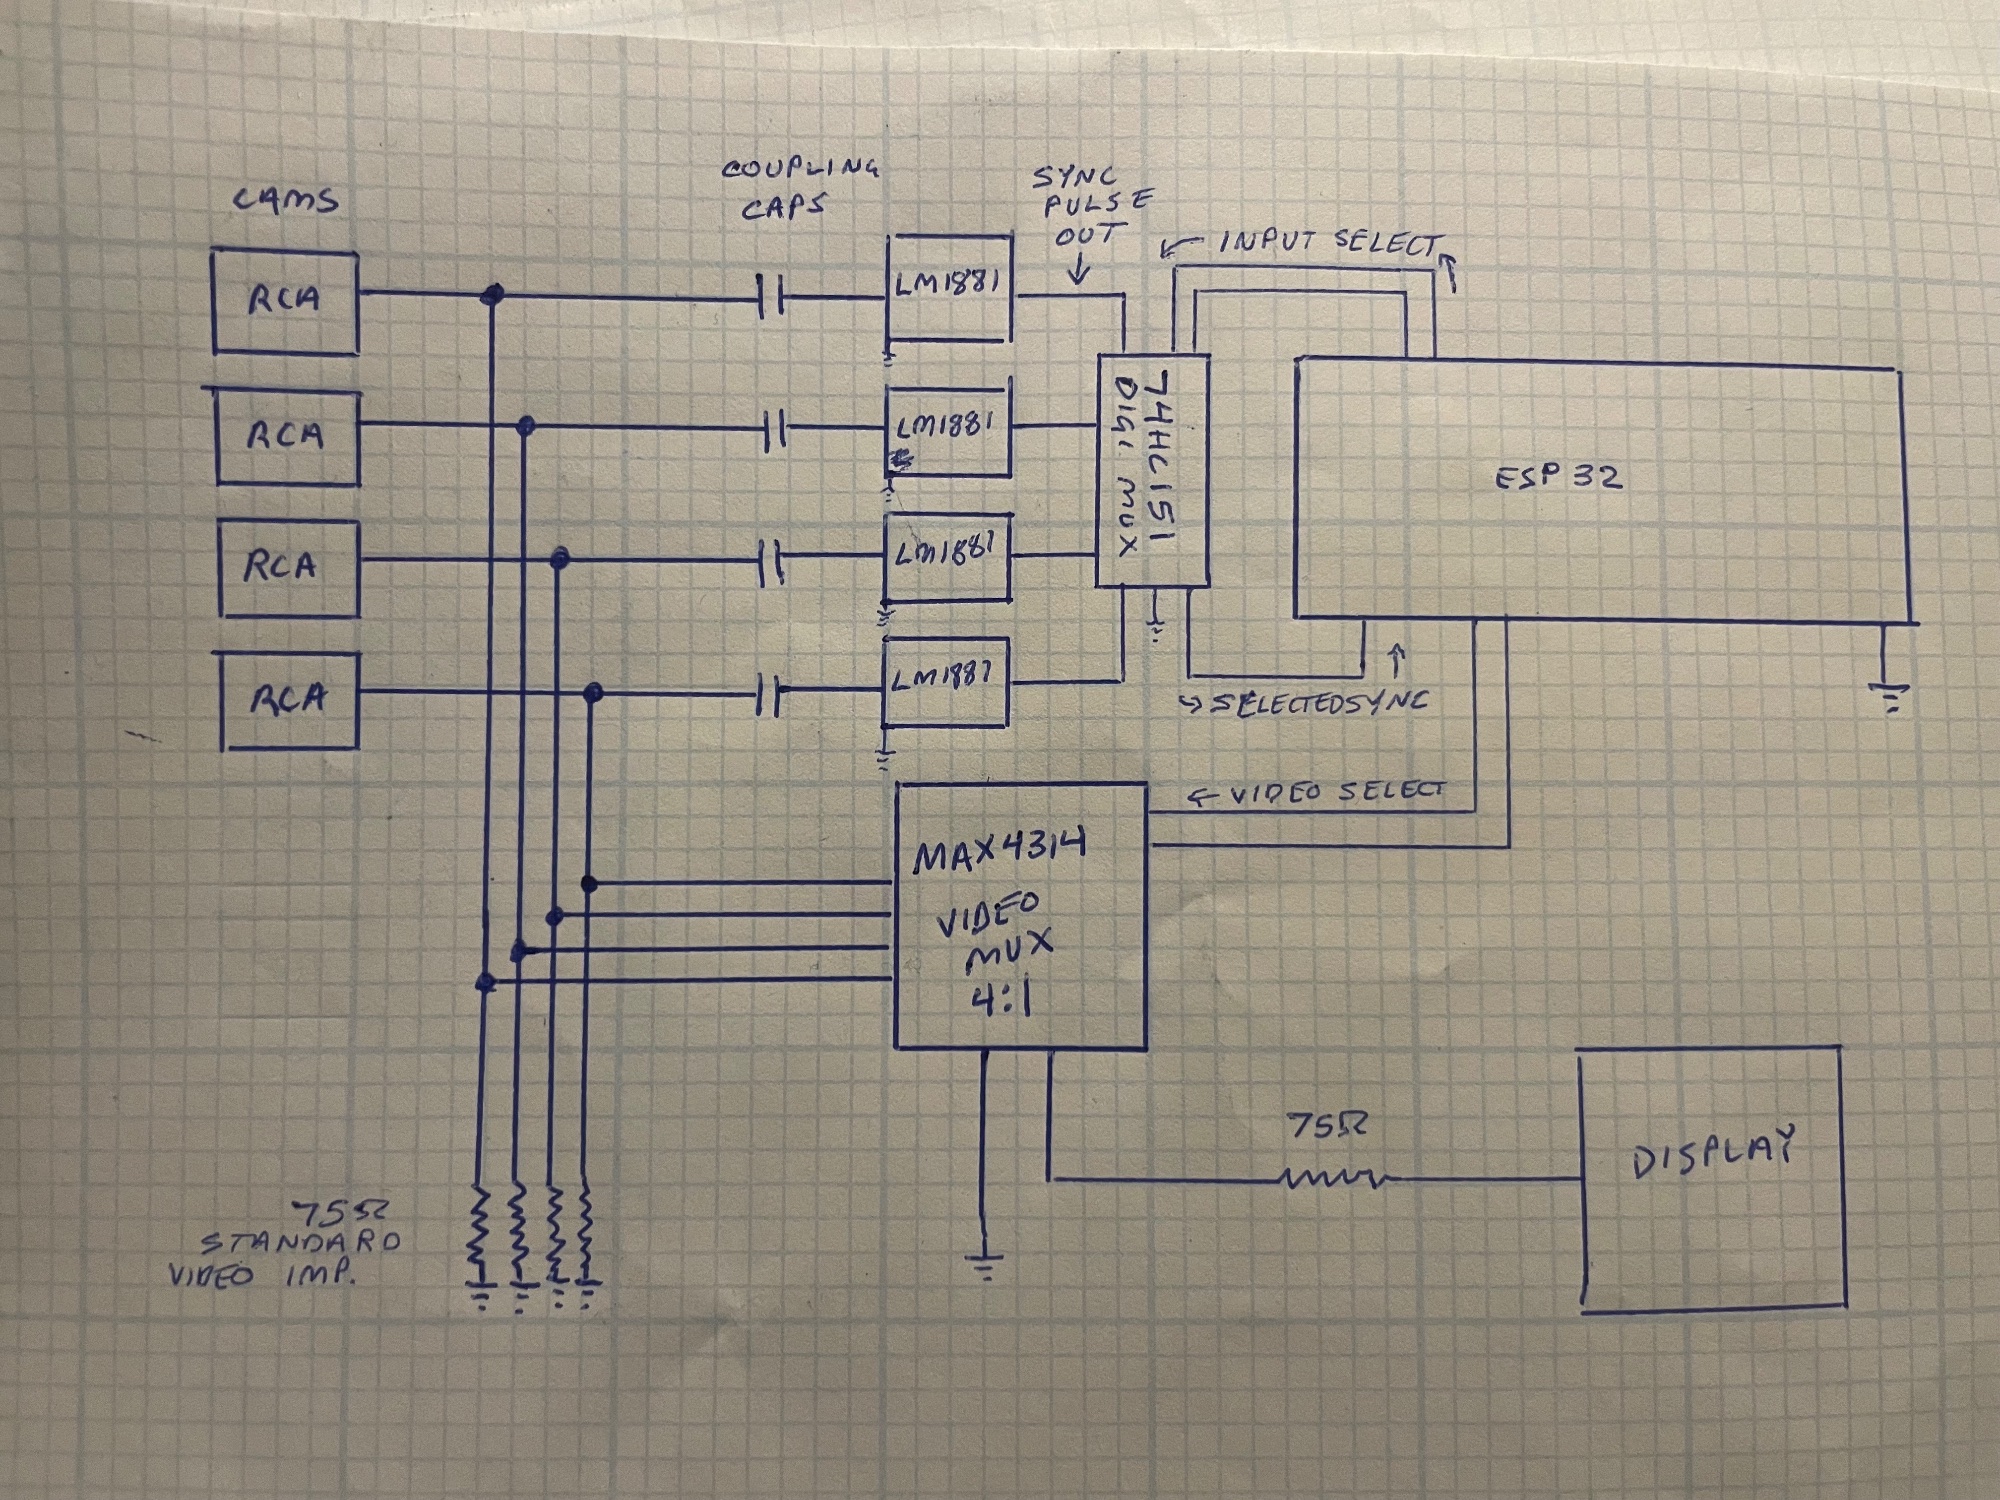 CAMS
COUPLING
CAPS
SYNC
PULSE
OUT
↓
↙ INPUT SELECT ↑
RCA
LM1881
RCA
LM1881
74HC151
DIGI. MUX
ESP 32
RCA
LM1881
RCA
LM1881
↑
↪ SELECTEDSYNC
← VIDEO SELECT
MAX4314
VIDEO
MUX
4:1
75Ω
DISPLAY
75Ω
STANDARD
VIDEO IMP.